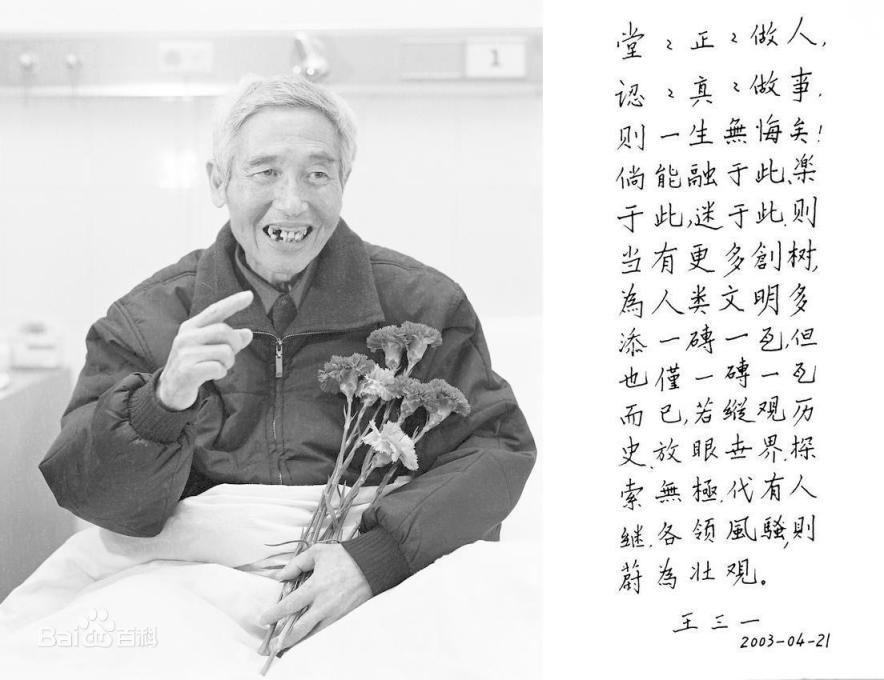 1
Bai百科
堂〻正〻做人,
認〻真〻做事,
则一生無悔矣!
倘能融于此,楽
于此,迷于此,则
当有更多創树,
為人类文明多
添一磚一瓦,但
也僅一磚一瓦
而已,若縱观历
史,放眼世界,探
索無極,代有人
继,各领風騷,则
蔚為壮观。
王三一
2003-04-21